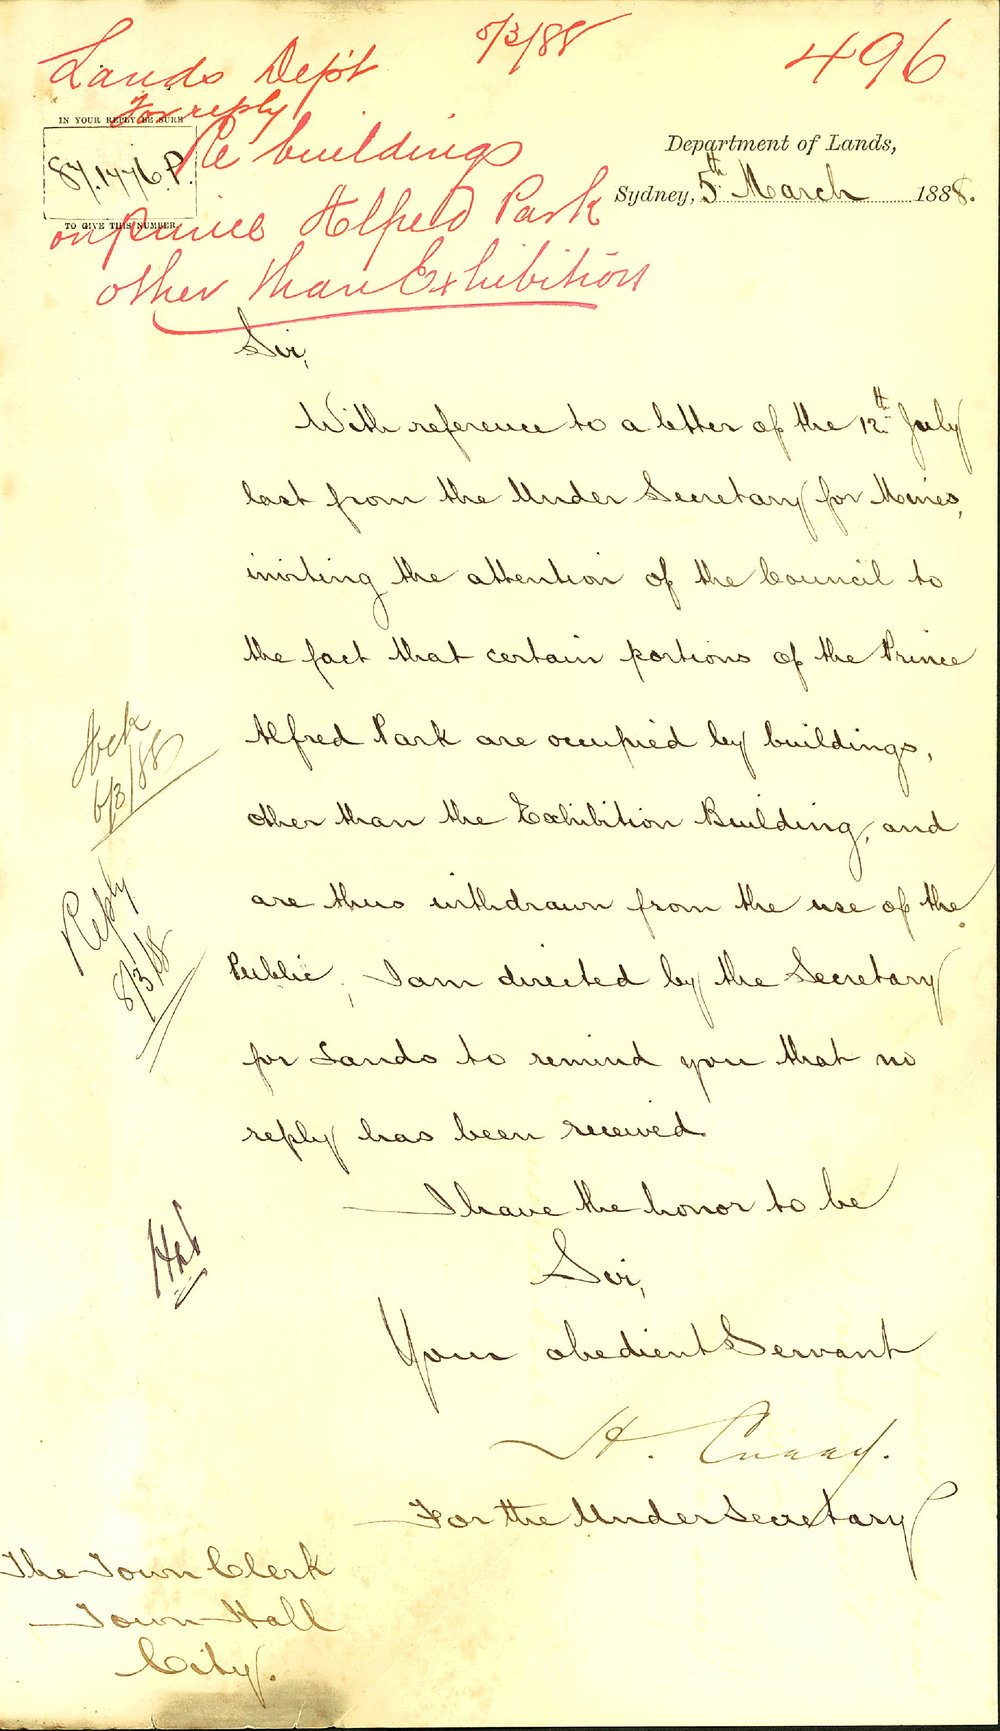 Lands Dept 5/3/88 496
For reply
IN YOUR REPLY BE SURE
87.1776.P.
TO GIVE THIS NUMBER.
Re buildings
on Prince Alfred Park
other than Exhibition
Department of Lands,
Sydney, 5th March 1888.
Sir,
With reference to a letter of the 12th July
last from the Under Secretary for Mines,
inviting the attention of the Council to
the fact that certain portions of the Prince
Alfred Park are occupied by buildings,
other than the Exhibition Building, and
are thus withdrawn from the use of the
Public, I am directed by the Secretary
for Lands to remind you that no
reply has been received
Ack
6/3/88
Reply
8/3/88
I have the honor to be
Sir,
Your obedient Servant
H.
For the Under Secretary
The Town Clerk
Town Hall
City.